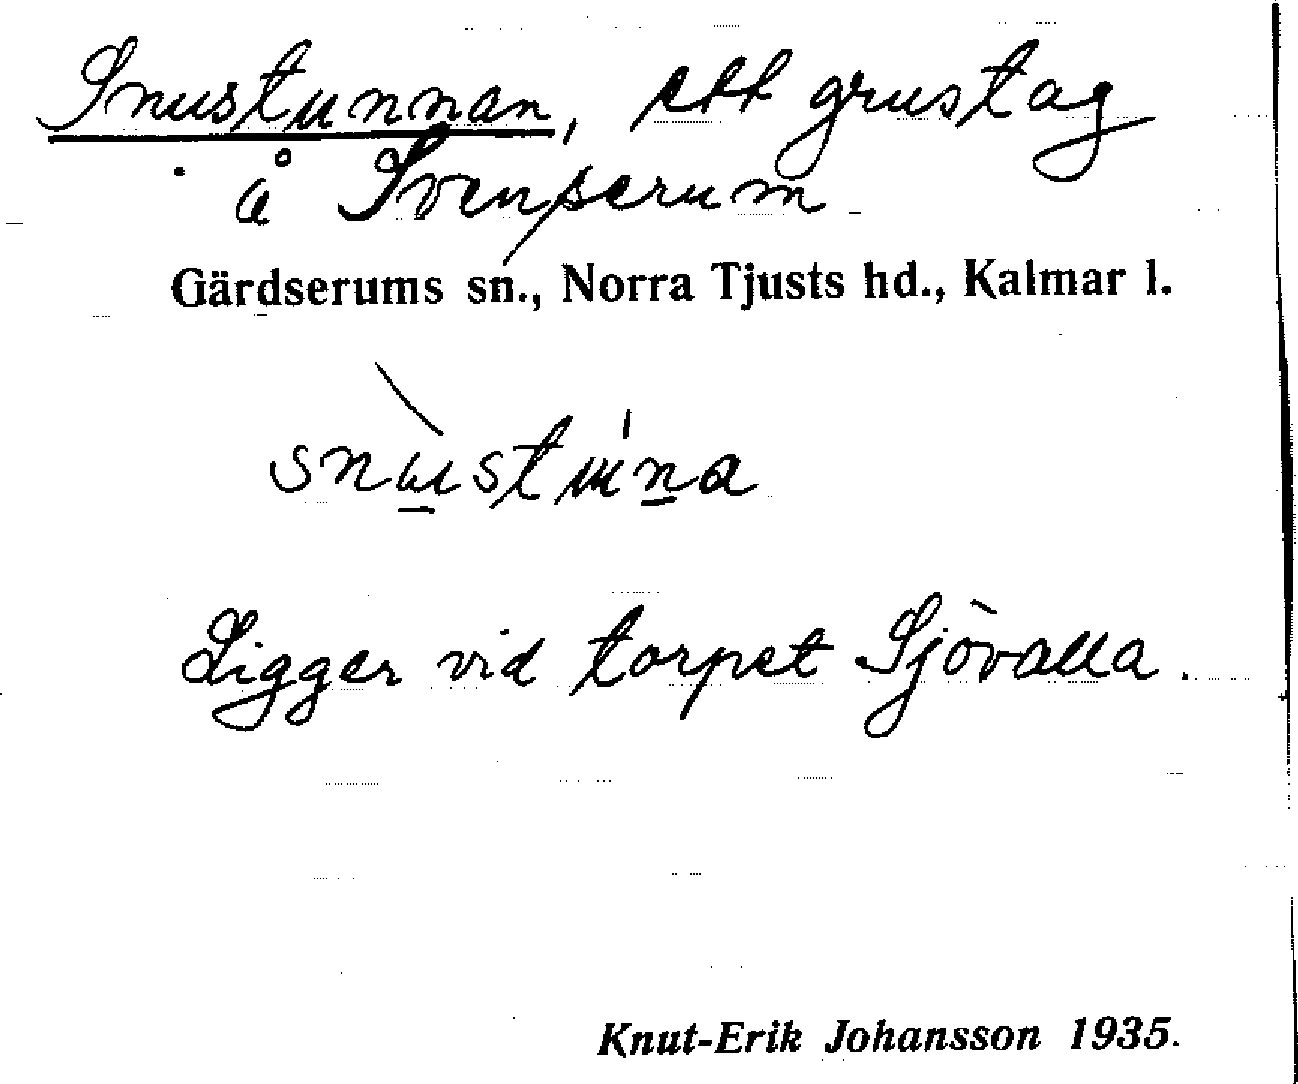 Snustunnan, ett grustag
å Svenserum
Gärdserums sn., Norra Tjusts hd., Kalmar l.
snùstu̍na
Ligger vid torpet Sjövalla.
Knut-Erik Johansson 1935.